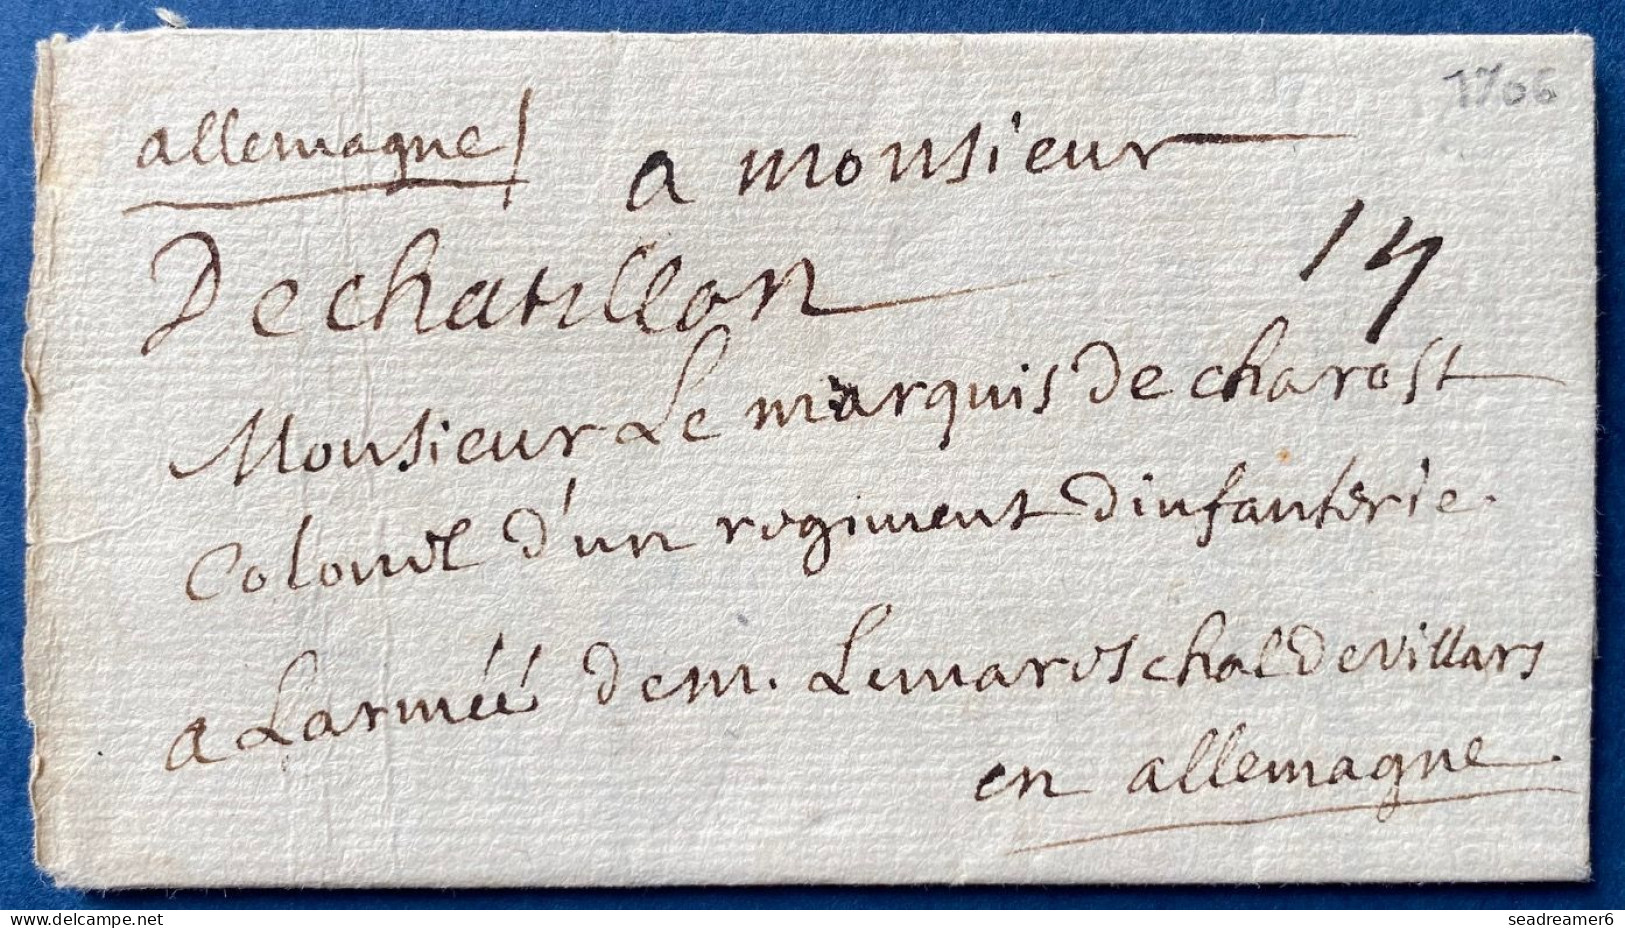 1706
allemagne/ a monsieur
De chatillon 14
Monsieur Le marquis de charost
Colonel d'un regiment dinfanterie.
a Larméé de m. Lemareschal de villars
en allemagne.
seadreamer6
delcampe.net